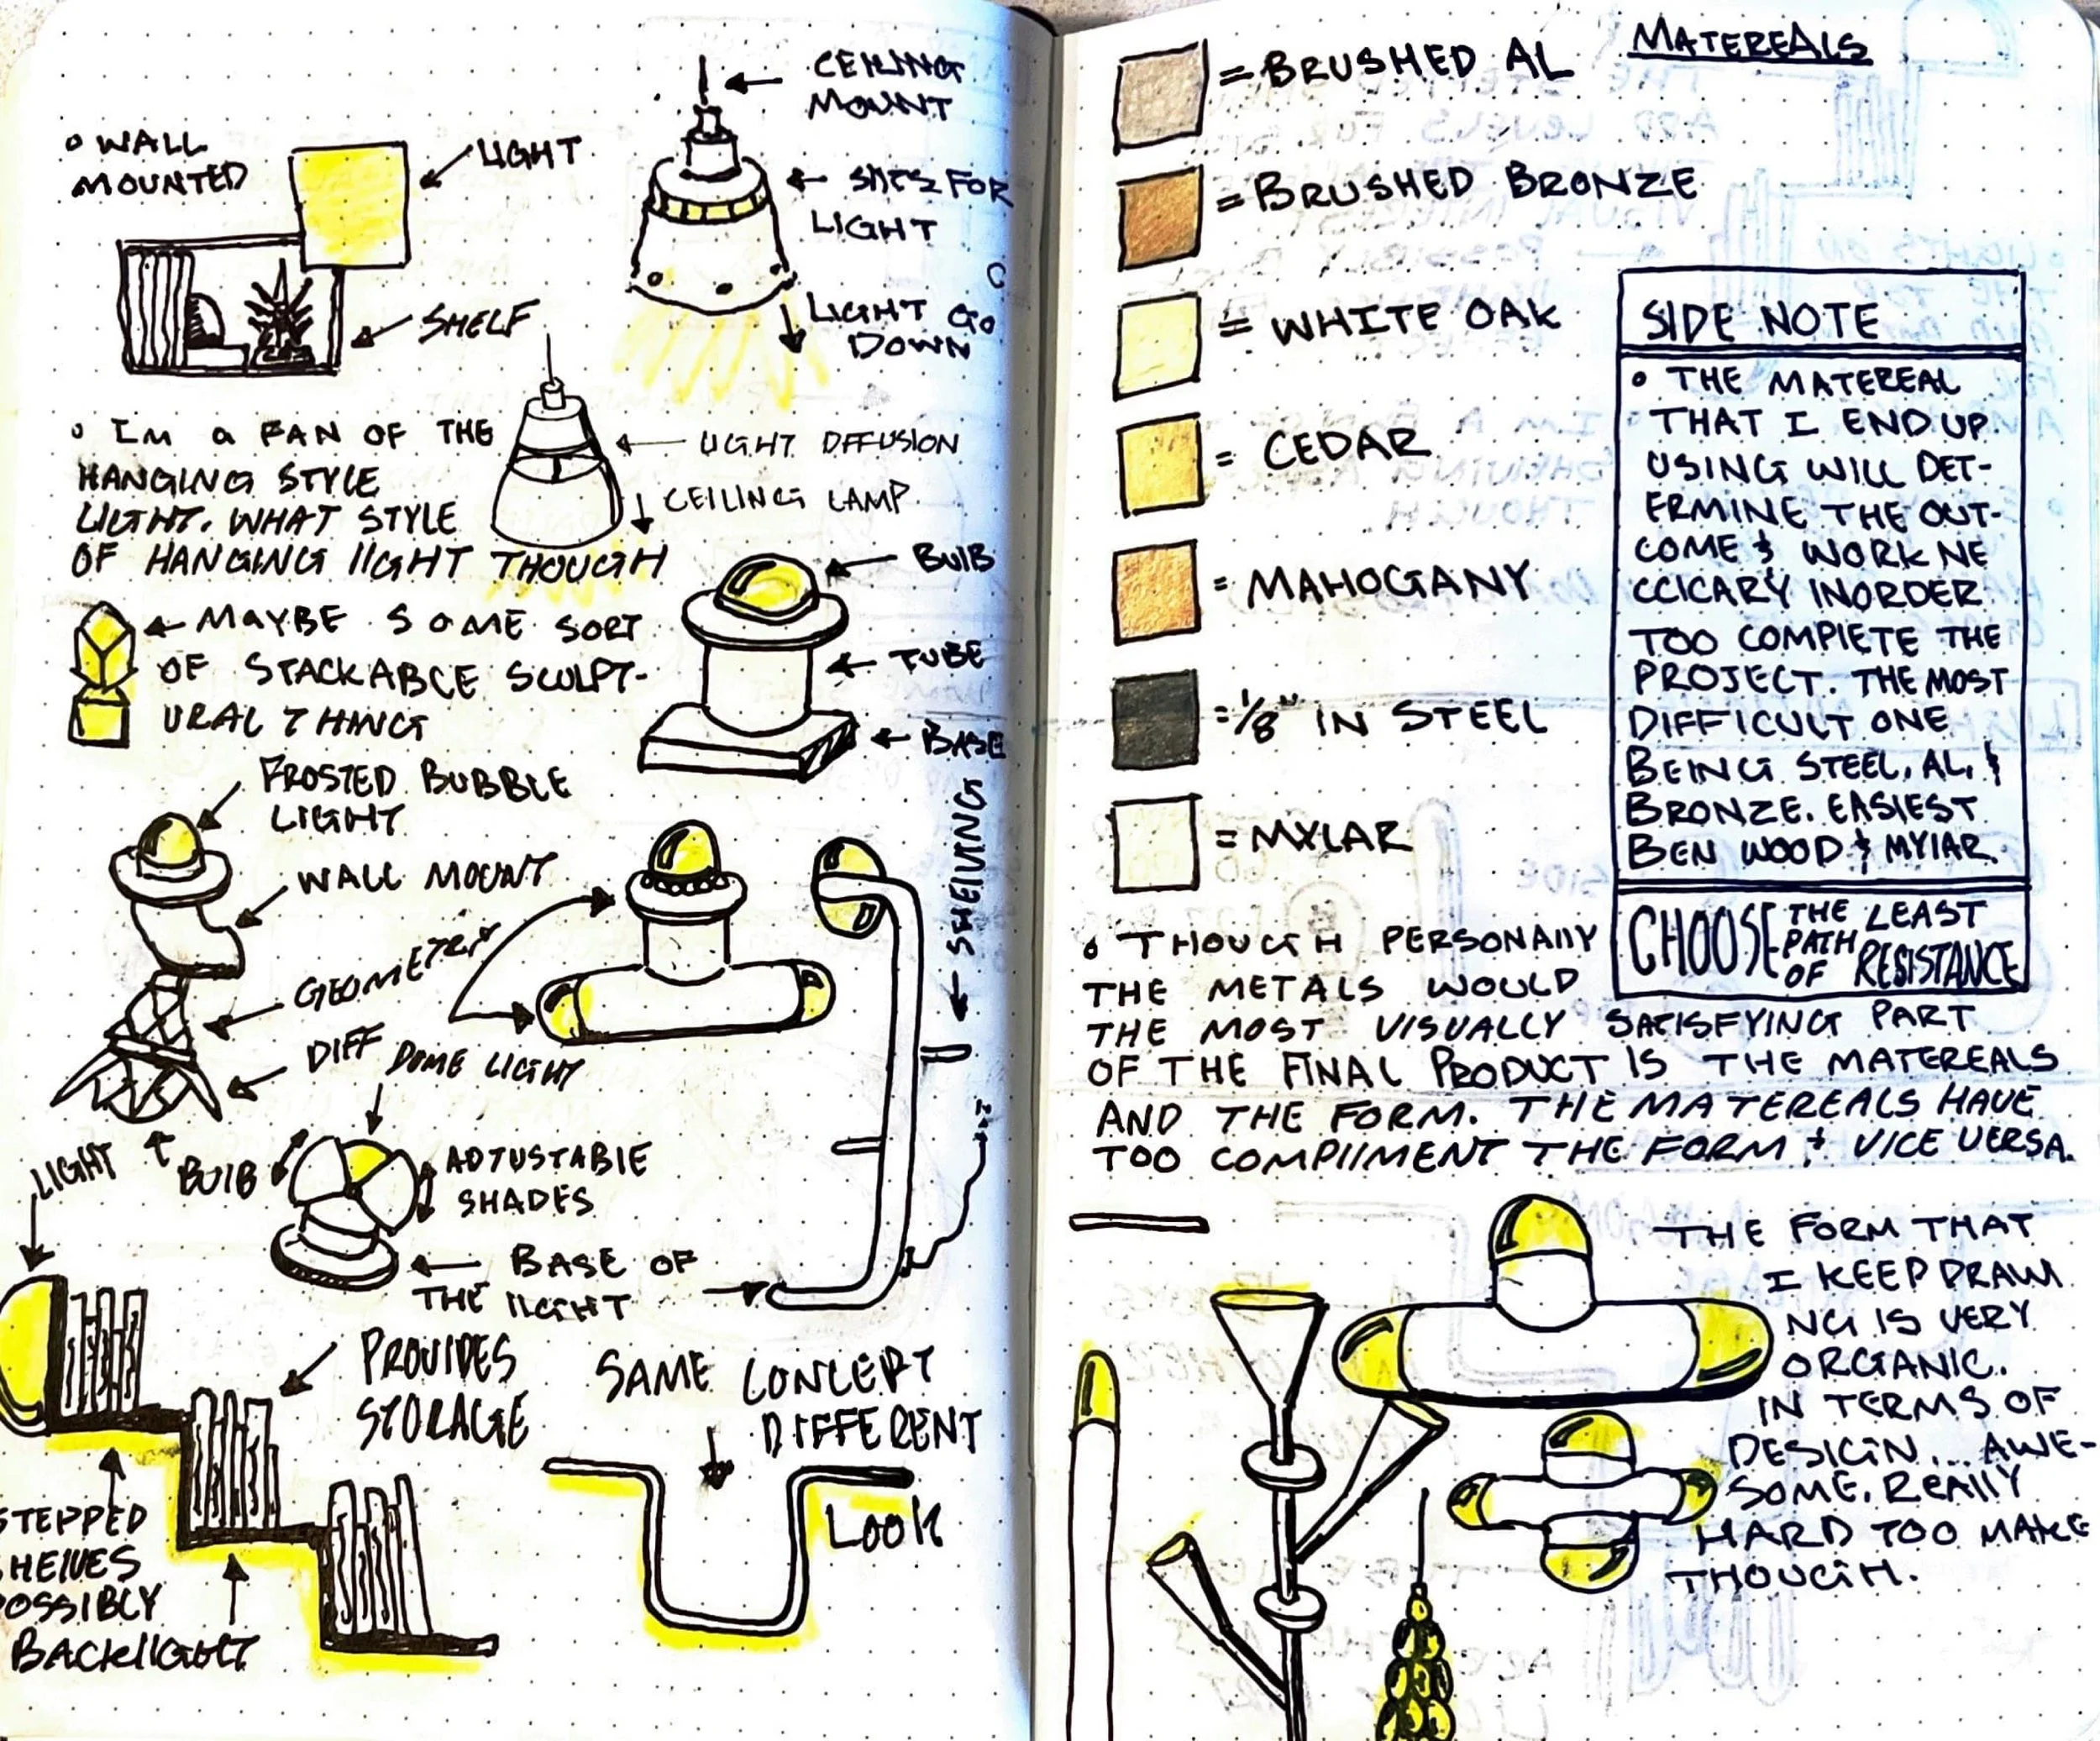 CEILING
MOUNT
• WALL
MOUNTED
LIGHT
SLITS FOR
LIGHT
LIGHT GO
DOWN
SHELF
• IM A FAN OF THE
HANGING STYLE
LIGHT. WHAT STYLE
OF HANGING LIGHT THOUGH
LIGHT DIFFUSION
CEILING LAMP
BULB
TUBE
BASE
MAYBE SOME SORT
OF STACKABLE SCULPT-
URAL THING
FROSTED BUBBLE
LIGHT
WALL MOUNT
GEOMETRIX
DIFF
DOME LIGHT
SHELVING
LIGHT
BULB
ADJUSTABLE
SHADES
BASE OF
THE LIGHT
PROVIDES
STORAGE
SAME CONCEPT
DIFFERENT
LOOK
STEPPED
SHELVES
POSSIBLY
BACKLIGHT
MATEREALS
= BRUSHED AL
= BRUSHED BRONZE
= WHITE OAK
= CEDAR
= MAHOGANY
= 1/8" IN STEEL
= MYLAR
SIDE NOTE
• THE MATEREAL
THAT I END UP
USING WILL DET-
ERMINE THE OUT-
COME & WORK NE
CCICARY INORDER
TOO COMPLETE THE
PROJECT. THE MOST
DIFFICULT ONE
BEING STEEL, AL, &
BRONZE. EASIEST
BEN WOOD & MYLAR.
CHOOSE THE PATH OF LEAST RESISTANCE
• THOUGH PERSONALLY
THE METALS WOULD
THE MOST VISUALLY SATISFYING PART
OF THE FINAL PRODUCT IS THE MATEREALS
AND THE FORM. THE MATEREALS HAVE
TOO COMPLIMENT THE FORM & VICE VERSA.
THE FORM THAT
I KEEP DRAWI
NG IS VERY
ORGANIC.
IN TERMS OF
DESIGN... AWE-
SOME. REALLY
HARD TOO MAKE
THOUGH.